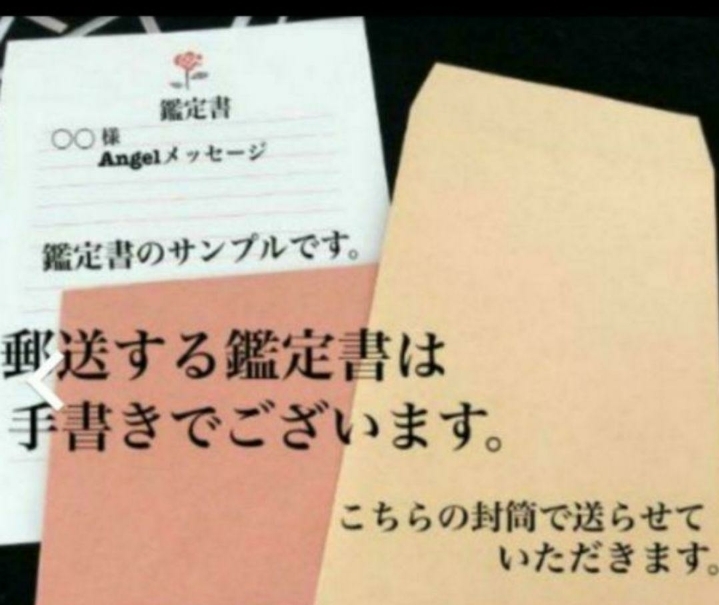 鑑定書
○○ 様
Angelメッセージ
鑑定書のサンプルです。
郵送する鑑定書は
手書きでございます。
こちらの封筒で送らせて
いただきます。